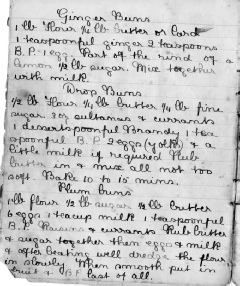 Ginger Buns
1 lb flour ¼ lb butter or lard
1 teaspoonful ginger 2 teaspoons
B.P. 1 egg. Part of the rind of a
lemon ½ lb sugar. Mix together
with milk.
Drop Buns
½ lb flour ¼ lb butter ¼ lb fine
sugar 2 oz sultanas & currants
1 dessertspoonful Brandy 1 tea
spoonful B.P. 2 eggs (yolks) & a
little milk if required Rub
butter in & mix all not too
soft. Bake 10 to 15 mins.
Plum buns
1 lb flour ½ lb sugar ½ lb butter
6 eggs 1 teacup milk 1 teaspoonful
B.P. Raisins & currants Rub butter
& sugar together then eggs & milk
& after beating well dredge the flour
in slowly. When smooth put in
fruit & B.P. last of all.